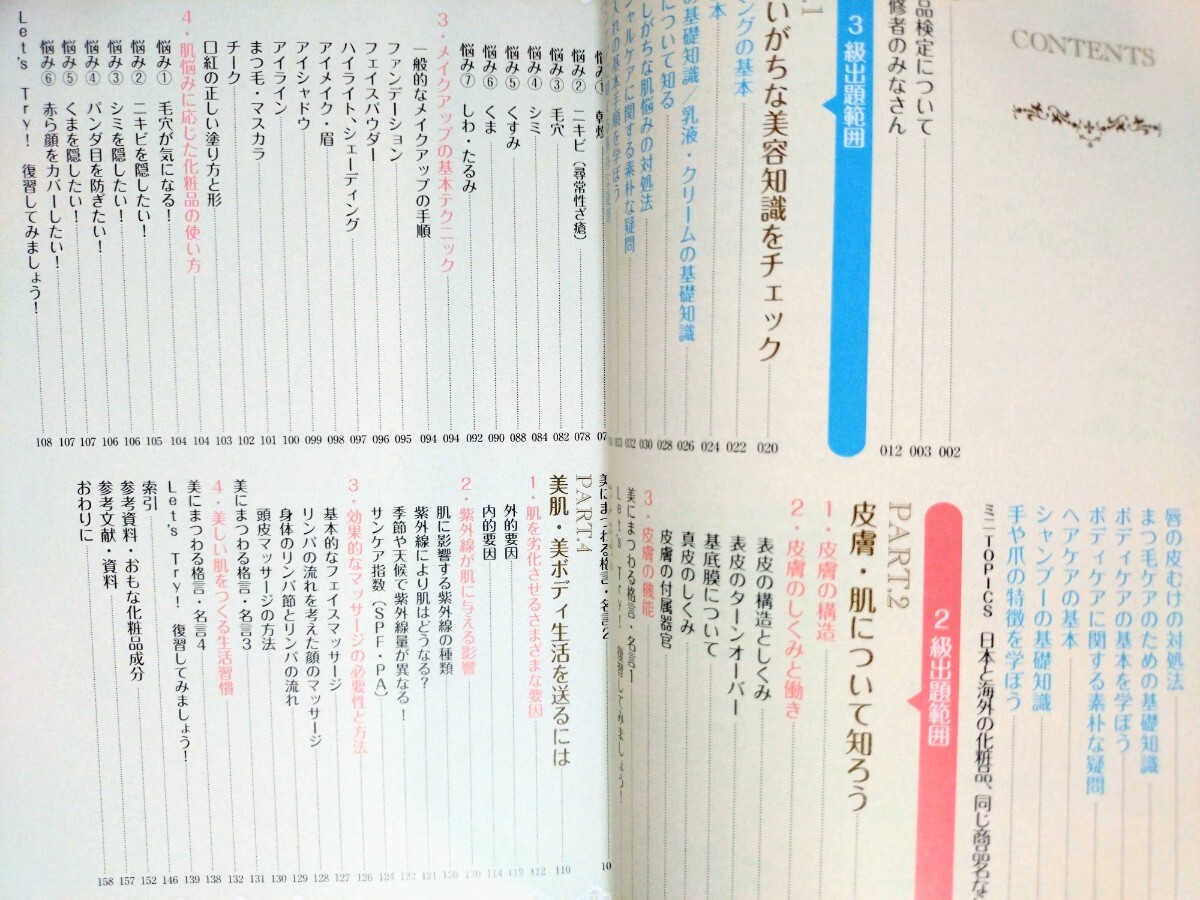 CONTENTS
品検定について 002
003
修者のみなさん 012
3級出題範囲
.1
いがちな美容知識をチェック 020
ングの基本 022
本 024
の基礎知識/乳液・クリームの基礎知識 026
について知る 028
しがちな肌悩みの対処法 030
シャルケアに関する素朴な疑問 032
入れの基本手順を学ぼう 033
唇の皮むけの対処法
まつ毛ケアのための基礎知識
ボディケアの基本を学ぼう
ボディケアに関する素朴な疑問
ヘアケアの基本
シャンプーの基礎知識
手や爪の特徴を学ぼう
ミニTOPICS 日本と海外の化粧品、同じ商品名な
2級出題範囲
PART.2
皮膚・肌について知ろう
1・皮膚の構造
2・皮膚のしくみと働き
表皮の構造としくみ
表皮のターンオーバー
基底膜について
真皮のしくみ
皮膚の付属器官
3・皮膚の機能
美にまつわる格言・名言1
Let's Try! 復習してみましょう!
悩み① 乾燥
悩み② ニキビ(尋常性ざ瘡) 078
悩み③ 毛穴 082
悩み④ シミ 084
悩み⑤ くすみ 088
悩み⑥ くま 090
悩み⑦ しわ・たるみ 092
3・メイクアップの基本テクニック 094
一般的なメイクアップの手順 094
ファンデーション 095
フェイスパウダー 096
ハイライト、シェーディング 097
アイメイク・眉 098
アイシャドウ 099
アイライン 100
まつ毛・マスカラ 101
チーク 102
口紅の正しい塗り方と形 103
4・肌悩みに応じた化粧品の使い方 104
悩み① 毛穴が気になる! 104
悩み② ニキビを隠したい! 105
悩み③ シミを隠したい! 106
悩み④ パンダ目を防ぎたい! 106
悩み⑤ くまを隠したい! 107
悩み⑥ 赤ら顔をカバーしたい! 107
Let's Try! 復習してみましょう! 108
美にまつわる格言・名言2
PART.4
美肌・美ボディ生活を送るには 110
1・肌を劣化させるさまざまな要因 112
外的要因 114
内的要因 119
2・紫外線が肌に与える影響 120
肌に影響する紫外線の種類 120
紫外線により肌はどうなる? 121
季節や天候で紫外線量が異なる! 122
サンケア指数(SPF・PA) 124
3・効果的なマッサージの必要性と方法 126
基本的なフェイスマッサージ 127
リンパの流れを考えた顔のマッサージ 128
身体のリンパ節とリンパの流れ 129
頭皮マッサージの方法 131
美にまつわる格言・名言3 132
4・美しい肌をつくる生活習慣 138
美にまつわる格言・名言4 139
Let's Try! 復習してみましょう! 146
索引 152
参考資料・おもな化粧品成分 157
参考文献・資料 158
おわりに